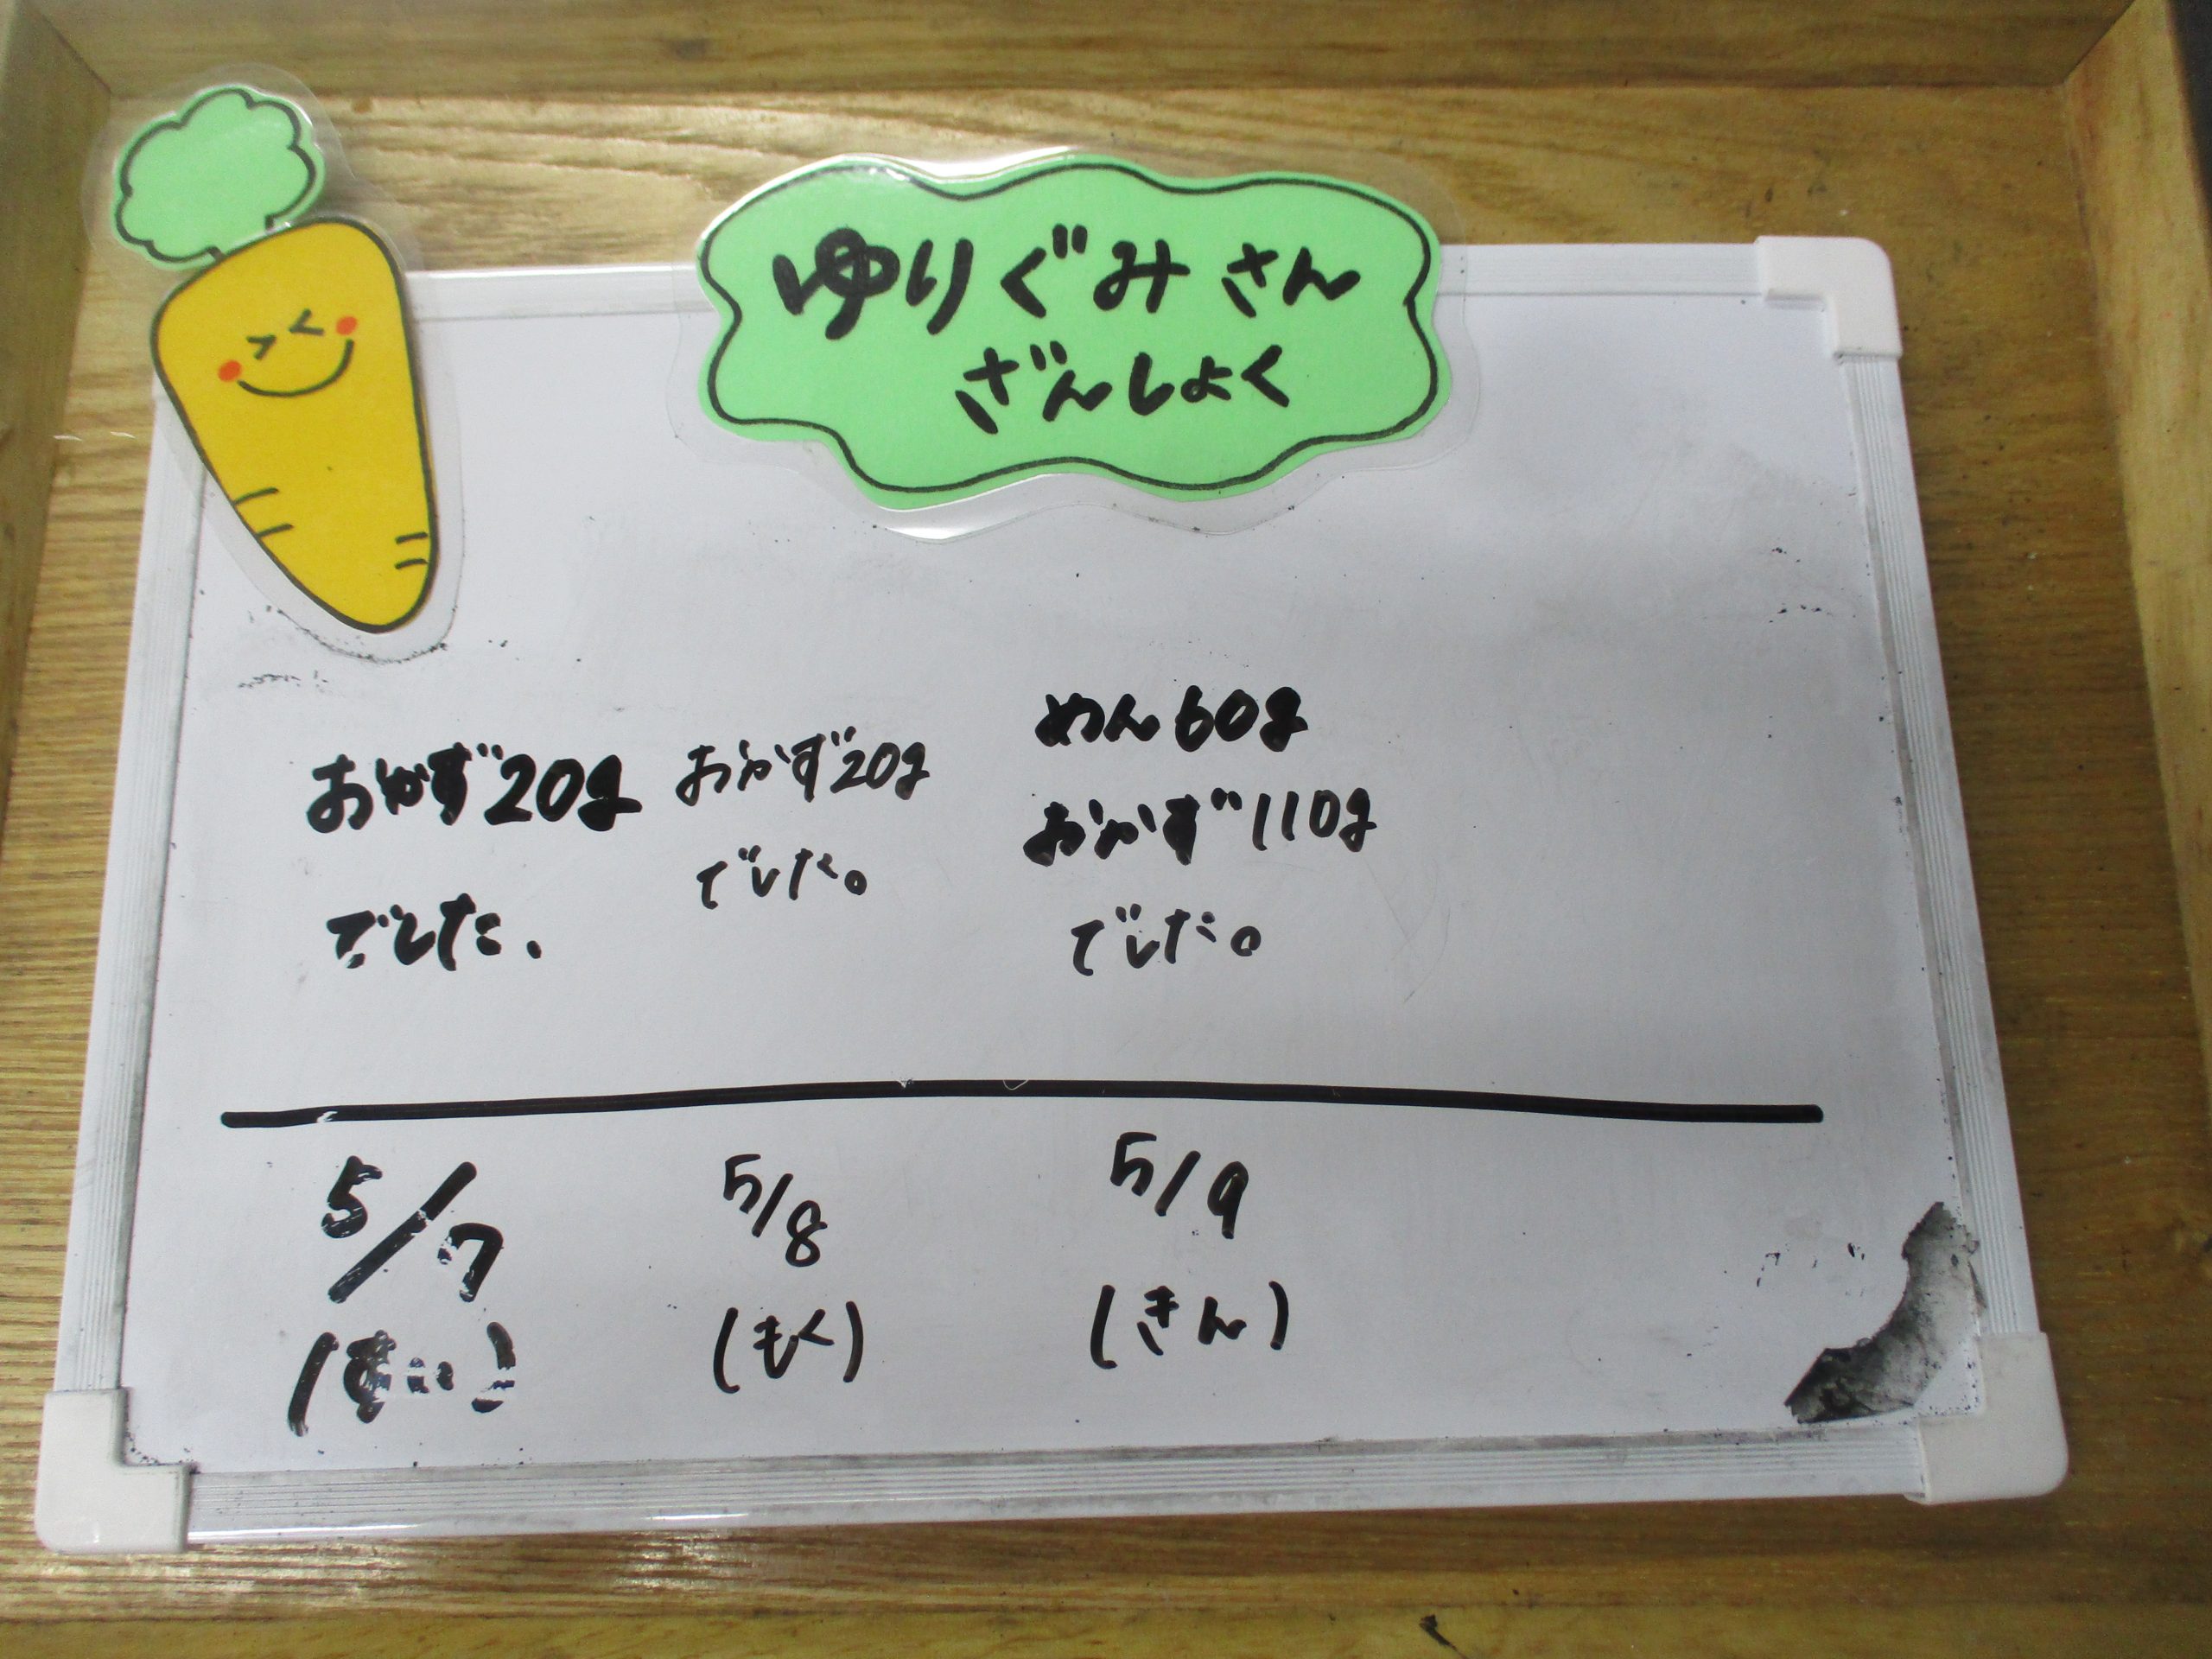 ゆりぐみさん
ざんしょく
おかず20g
でした.
おかず20g
でした。
めん60g
おかず110g
でした。
5/7
(すい)
5/8
(もく)
5/9
(きん)